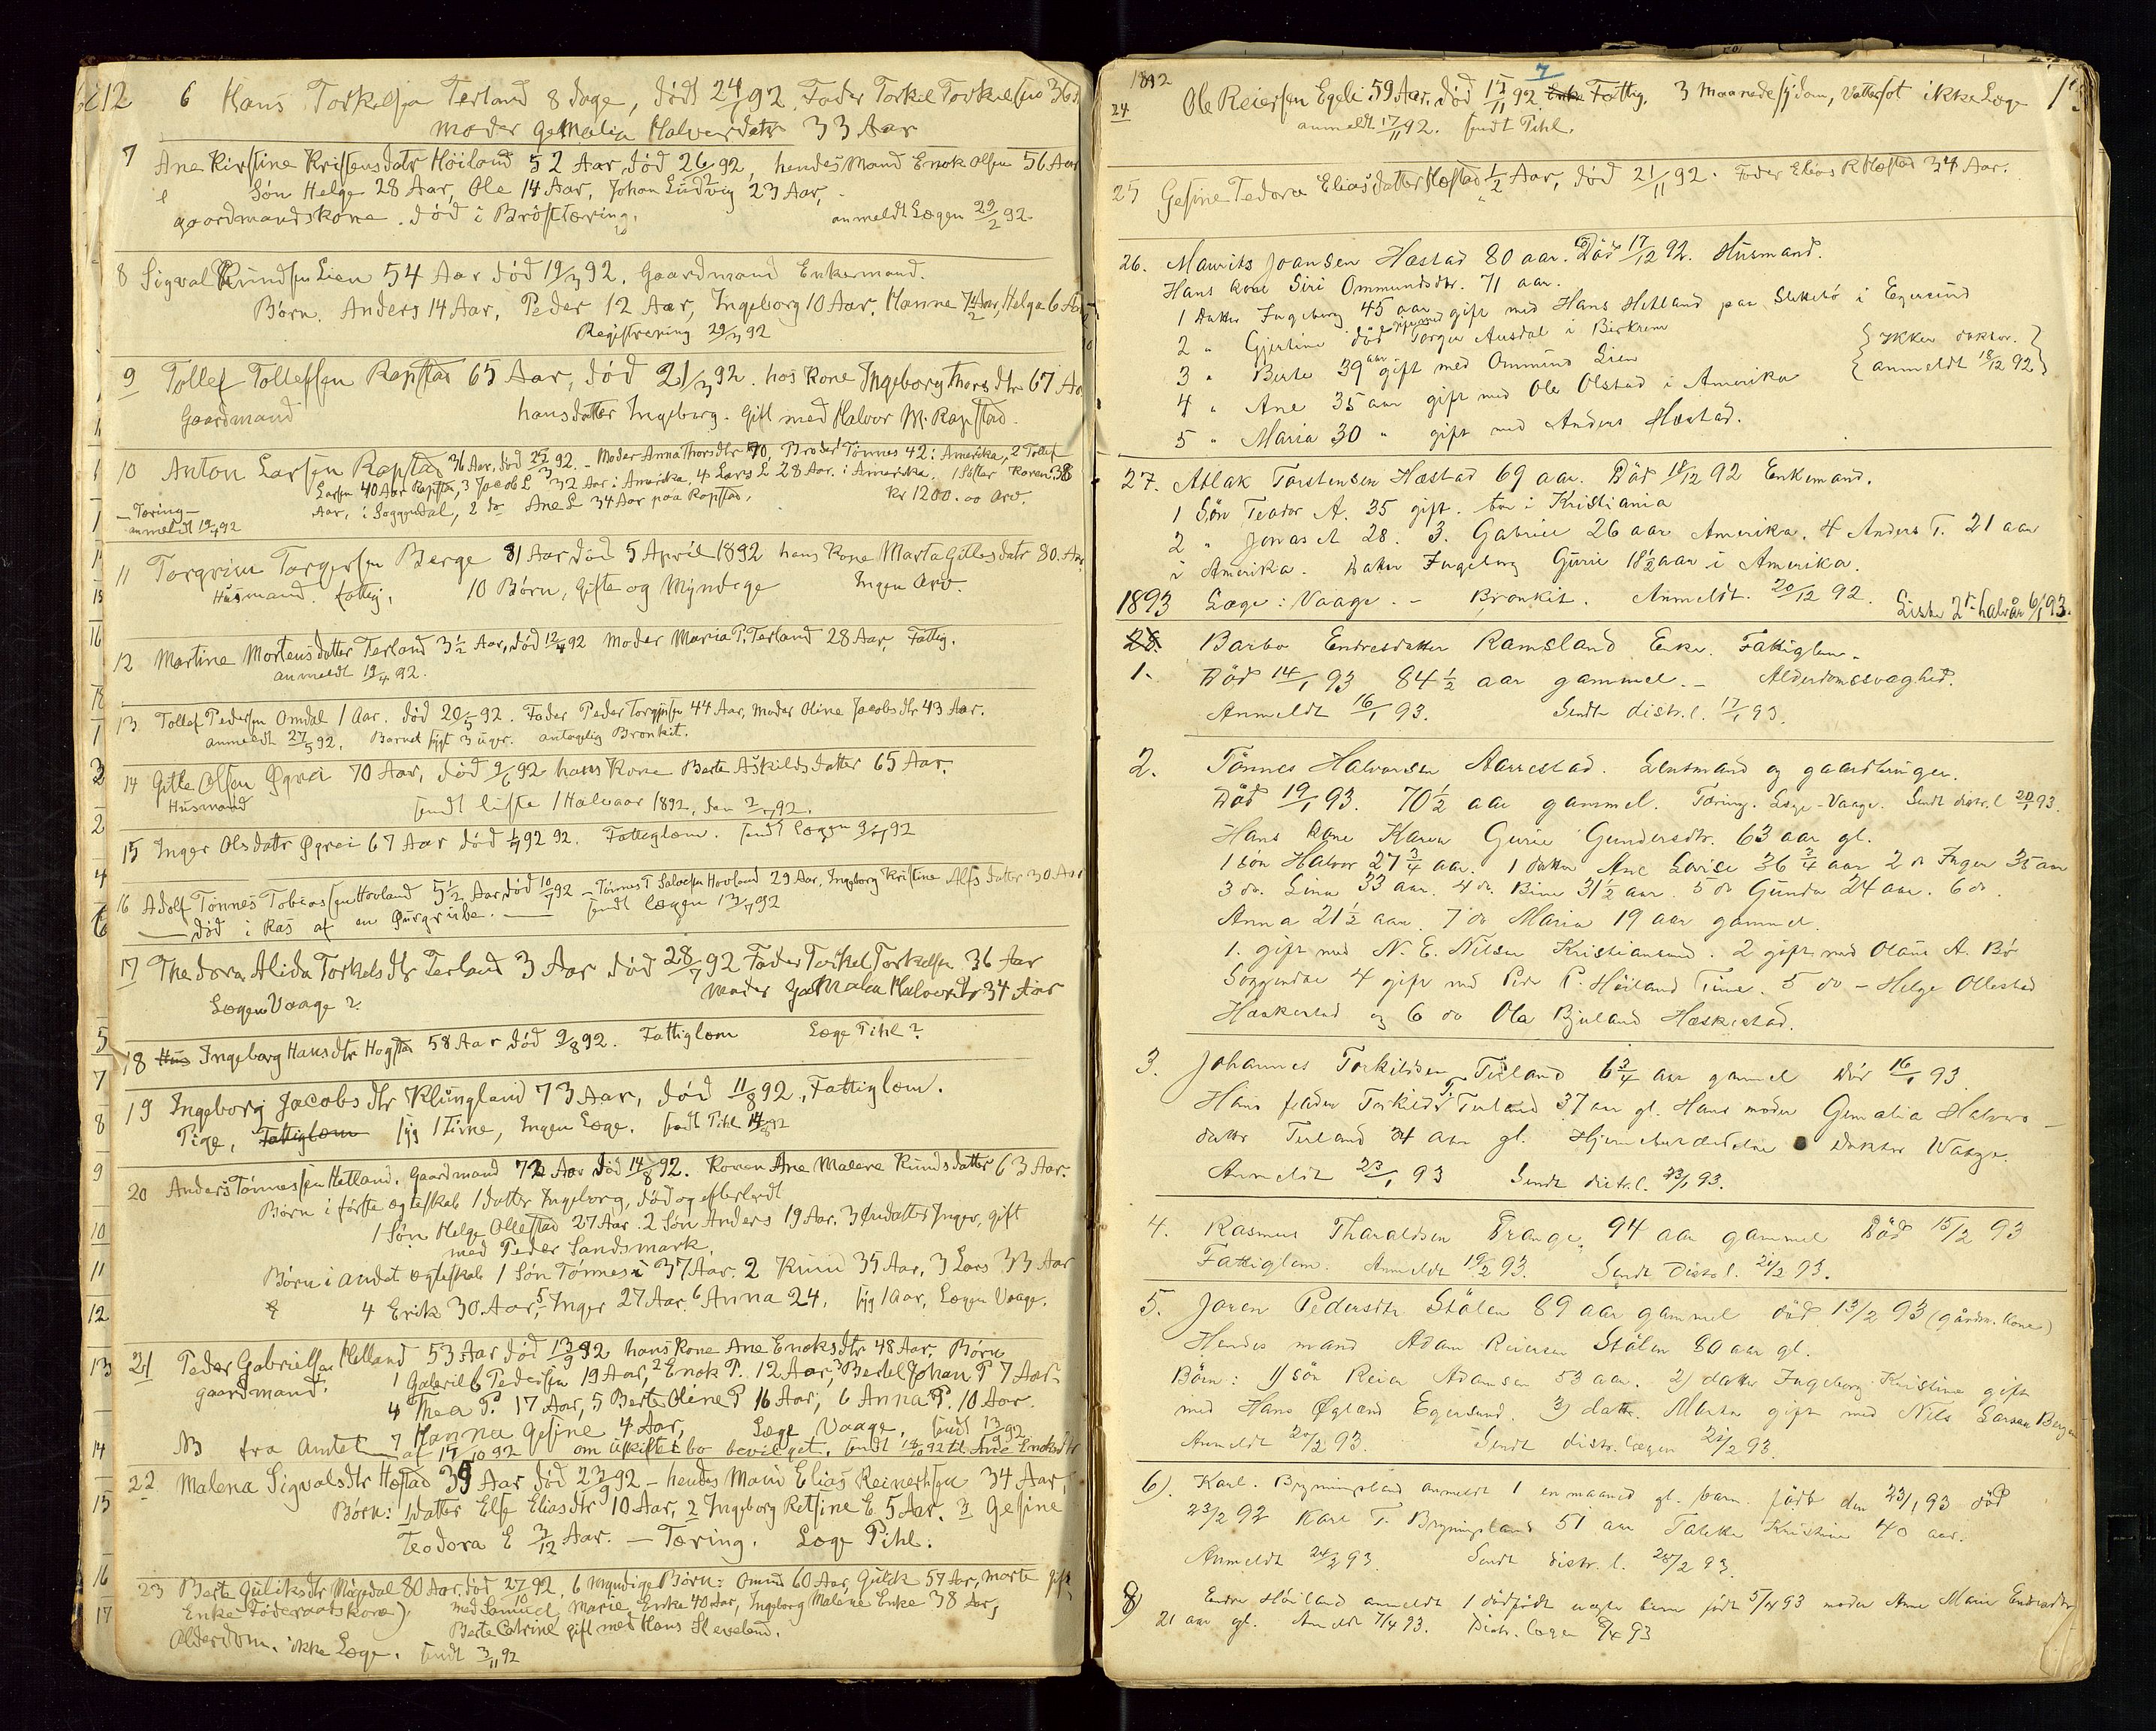 12
6 Hans Torkelsen Terland 8 dage, død 24/ 92. Fader Torkel Torkelsen 36
moder Gemalia Halvordatr 33 Aar
7 Ane Kirstine Kristensdatr Høiland 52 Aar, død 26/2 92, hendes Mand Enok Olsen 56 Aar
Søn Helge 28 Aar, Ole 14 Aar, Johan Ludvig 23 Aar,
gaardmandskone. død i Brösttæring. anmeldt Lægen 29/2 92.
8 Sigval Knudsen Lien 54 Aar død 19/3 92. Gaardmand Enkemand.
Børn. Anders 14 Aar, Peder 12 Aar, Ingeborg 10 Aar, Hanne 7 1/2 Aar, Helga 6 Aar
Registrering 29/3 92
9 Tollef Tollefsen Rapstad 65 Aar, død 21/3 92. hos Kone Ingeborg Thorsdtr 67 Aar
Gaardmand hans datter Ingeborg. gift med Halvor M. Rapstad.
10 Anton Larsen Rapstad 36 Aar, død 92. - Moder Anna Thorsdtr 70, Broder Tønnes 42 i Amerika, 2 Tollef
Larsen 40 Aar Rapstad, 3 Jacob L 32 Aar i Amerika, 4 Lars L 28 Aar. i Amerika. 1 Søster Karen 38
Aar, i Soggendal, 2 do Ane L 34 Aar paa Rapstad, Kr 1200.00 Arv.
- Tæring -
anmeldt 19/4 92
11 Torgrim Torgersen Berge 81 Aar død 5 April 1892 hans Kone Marta Gitlesdatr 80. Aar
Husmand. fattig, 10 Børn, Gifte og Myndige Ingen Arv.
12 Martine Mortensdatter Terland 3 1/2 Aar, død 12/4 92 Moder Maria P. Terland 28 Aar, Fattig.
anmeldt 19/4 92.
13 Tollef Pedersen Omdal 1 Aar. død 20/5 92. Fader Peder Torgersen 44 Aar, Moder Oline Jacobsdtr 43 Aar.
anmeldt 27/5 92. Barnet sygt 3 uger. antagelig Bronkit.
14 Gitle Olsen Øgrei 70 Aar, død 9/6 92 hans Kone Berte Askildsdatter 65 Aar.
Husmand sendt liste 1 Halvaar 1892, den 2/7 92.
15 Inger Olsdatr Øgrei 67 Aar død 1/7 92 92. Fattiglem. sendt Lægen 9/7 92
16 Adolf Tønnes Tobiassen Hovland 5 1/2 Aar, død 10/7 92 - Tønnes T Salvesen Hovland 29 Aar, Ingeborg Kristine Alfsdatter 30 Aar
død i Ras af en Gurgrube. sendt Lægen 13/7 92
17 Thedora Alida Torkelsdtr Terland 3 Aar død 28/7 92 Fader Torkel Torkelsen 36 Aar
Moder Gemalia Halvordtr 34 Aar
Lægen Vaage?
18 Hus Ingeborg Hansdtr Hogstad 58 Aar død 9/8 92. Fattiglem Læge Pihl?
19 Ingeborg Jacobsdtr Klungland 73 Aar, død 11/8 92., Fattiglem.
Pige, Fattiglem syg 1 Time, Ingen Læge. sendt Pihl 14/8 92
20 Anders Tønnessen Hetland, Gaardmand 72 Aar død 14/8 92. Konen Ane Malene Knudsdatter 63 Aar.
Børn i første ægteskab 1 datter Ingeborg, død og efterladt
1 Søn Helge Ollestad 27 Aar. 2 Søn Anders 19 Aar. 3 Inger, gift
med Peder Sandsmark.
Børn i andet ægteskab 1 Søn Tønnes 37 Aar. 2 Knud 35 Aar, 3 Lars 33 Aar
4 Erik 30 Aar, 5 Inger 27 Aar, 6 Anna 24. syg 1 Aar, Lægen Vaage.
21 Peder Gabrielsen Helland 53 Aar død 13/9 92 hans Kone Ane Enoksdtr 48 Aar. Børn
gaardmand. 1 Gabriel Pedersen 19 Aar, 2 Enok P. 12 Aar, 3 Bertel Johan P 7 Aar.
4 Thea P. 17 Aar, 5 Berte Oline P 16 Aar, 6 Anna P. 10 Aar.
7 Hanna Gesine 4 Aar, Læge Vaage, sendt 13/9 92
NB fra Amtet af 14/10 92 om uskiftet bo bevilget, sendt 18/10 92 til Ane Enoksdtr
22 Malena Sigvalsdtr Hæstad 39 Aar død 23/9 92 - hendes Mand Elias Reinertsen 34 Aar,
Børn: 1 datter Else Eliasdtr 10 Aar, 2 Ingeborg Retsine E. 5 Aar. 3 Gesine
Teodora E 3/12 Aar. - Tæring. Læge Pihl.
23 Berte Guliksdtr Mægedal 80 Aar, død 27/10 92, 6 Myndige Børn: Omund 60 Aar, Gulik 57 Aar, Marte gift
Enke Føderaadskone). med Samuel, Marie Enke 40 Aar, Ingeborg Malene Enke 38 Aar,
Berte Catrine gift med Hans Sleveland.
Alderdom. ikke Læge. sendt 3/11 92
1892
24 Ole Reiersen Egeli 59 Aar, død 15/11 92 Enke Fattig. 3 Maanedesygdom, Vattersot ikke Læge
anmeldt 17/11 92. sendt Pihl.
25 Gesine Tedora Eliasdatter Hæstad 1/2 Aar, død 21/11 92. Fader Elias R Hæstad 34 Aar.
26. Maurits Joansen Hæstad 80 aar. Død 17/12 92. Husmand.
Hans kone Siri Ommundsdtr. 71 aar.
1 Datter Ingeborg 45 aar gift med Hans Hetland paa Slettebö i Egersund
2 " Gjertine død gift med Torger Ausdal i Birkrem
3 " Berte 39 aar gift med Ommund Lien
4 " Ane 35 aar gift med Ole Olstad i Amerika
5 " Maria 30 " gift med Anders Hæstad.
{ Ikke doktor. }
{ anmeldt 18/12 92 }
27. Aslak Torstensen Hæstad 69 aar. Död 18/12 92 Enkemand.
1 Søn Teador A. 35 gift. bor i Kristiania
2 " Jonas A 28. 3. Gabriel 26 aar Amerika. 4 Anders T. 21 aar
i Amerika. Datter Ingeborg Gurie 18 1/2 aar i Amerika.
1893 Læge: Vaage. - Bronkit. Anmeldt. 20/12 92. Liste 2det halvår 6/1 93.
28. Barbo Endresdatter Ramsland Enke. Fattiglem.
1. Död 14/1 93 84 1/2 aar gammel. - Alderdomssvaghed.
Anmeldt 16/1 93. Sendt distr. l. 17/1 93.
2. Tönnes Halvorsen Aarrestad. Lensmand og gaardbruger.
Död 19/1 93. 70 1/2 aar gammel. Tæring. Læge-Vaage. Sendt distr. l 20/1 93.
Hans kone Karen Gurie Gundersdtr. 63 aar gl.
1 sön Halvor 27 3/4 aar. 1 datter Ane Lovise 36 3/4 aar 2 do Inger 35 aar
3 do. Lina 33 aar. 4 do. Bine 31 1/2 aar. 5 do Gunda 24 aar. 6 do
Anna 21 1/2 aar. 7 do Maria 19 aar gammel.
1. gift med N. E. Nilsen Kristiansund. 2 gift med Olaus A. Bö
Soggendal 4 gift med Peder P. Höiland Time. 5 do - Helge Ollestad
og 6 do Ola Bjuland Hæskestad.
3. Johannes Torkildsen Terland 6 3/4 aar gammel død 16/1 93
Hans fader Torkild T. Terland 37 aar gl. Hans moder Gemalia Halvors-
datter Terland 34 aar gl. Hjernebetændelse Doktor Waage.
Anmeldt 23/1 93 Sendt distr. l. 23/1 93.
4. Rasmus Tharaldsen Drange, 94 aar gammel Död 15/2 93
Fattiglem. Anmeldt 19/2 93. Sendt Distr. l. 21/2 93.
5. Joren Pedersdtr Stölen 89 aar gammel död 13/2 93 (gårdm. kone)
Hendes mand Adam Reiersen Stölen 80 aar gl.
Börn: 1) sön Reier Adamsen 53 aar. 2) datter Ingeborg Kristine gift
med Hans Øgland Egersund. 3) dattr. Marta gift med Nils Larsen Bergen
Anmeldt 20/2 93. Sendt distr. lægen 21/2 93.
6). Karl. Bryningsland anmeldt 1 en maaned gl. barn. født den 23/1 93 död
23/2 93 Karl T. Bryningsland 51 aar Tabitte Kristine 40 aar.
Anmeldt 24/2 93. Sendt distr. l. 28/2 93.
8) Endre Höiland anmeldt 1 dödfödt uægte barn födt 5/4 93 moder Ane Marie Endresdtr
21 aar gl. Anmeldt 7/4 93. Distr. lægen 8/4 93